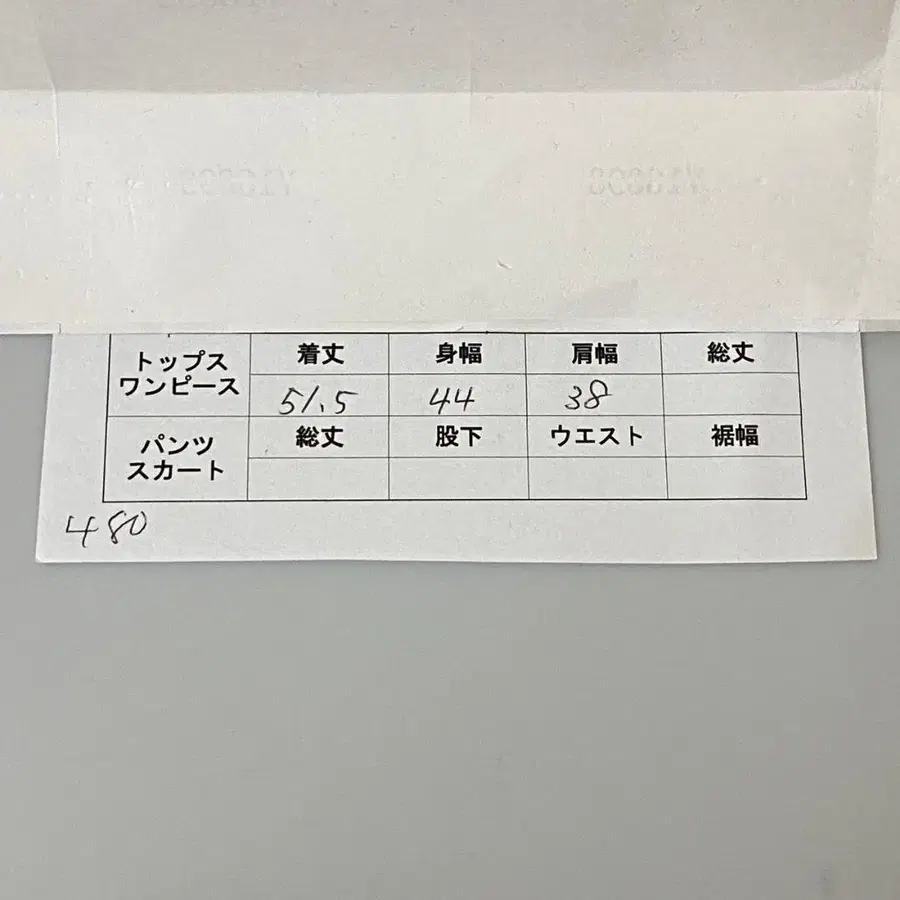 トップス
ワンピース
着丈 身幅 肩幅 総丈
51.5 44 38
パンツ
スカート
総丈 股下 ウエスト 裾幅
480